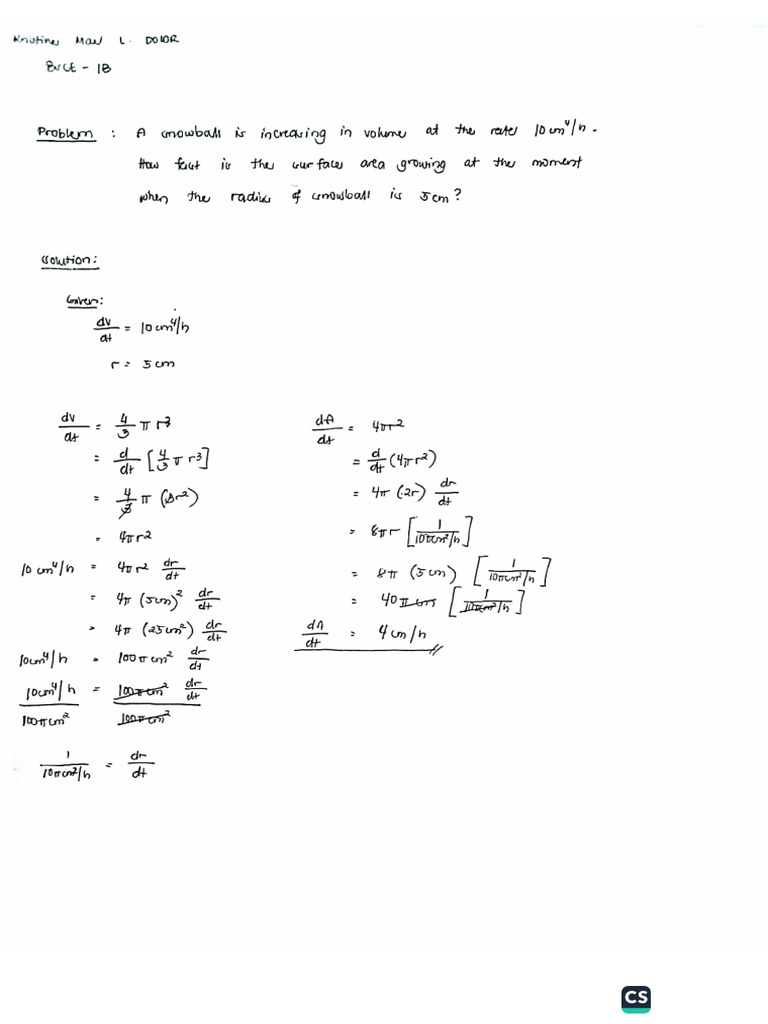 Kristine Mae L. DOLOR
BSCE - 1B
Problem : A snowball is increasing in volume at the rate 10 cm⁴/h.
How fast is the surface area growing at the moment
when the radius of snowball is 5cm?
Solution:
Given:
dv/dt = 10 cm⁴/h
r = 5 cm
dv/dt = 4/3 π r³
= d/dt [4/3 π r³]
= 4/3 π (3r²)
= 4πr²
10 cm⁴/h = 4πr² dr/dt
= 4π (5cm)² dr/dt
= 4π (25cm²) dr/dt
10cm⁴/h = 100πcm² dr/dt
10cm⁴/h / 100πcm² = 100πcm² / 100πcm² dr/dt
1 / 10πcm²/h = dr/dt
dA/dt = 4πr²
= d/dt (4πr²)
= 4π (2r) dr/dt
= 8πr [1 / 10πcm²/h]
= 8π (5cm) [1 / 10πcm²/h]
= 40πcm [1 / 10πcm²/h]
dA/dt = 4 cm/h
CS